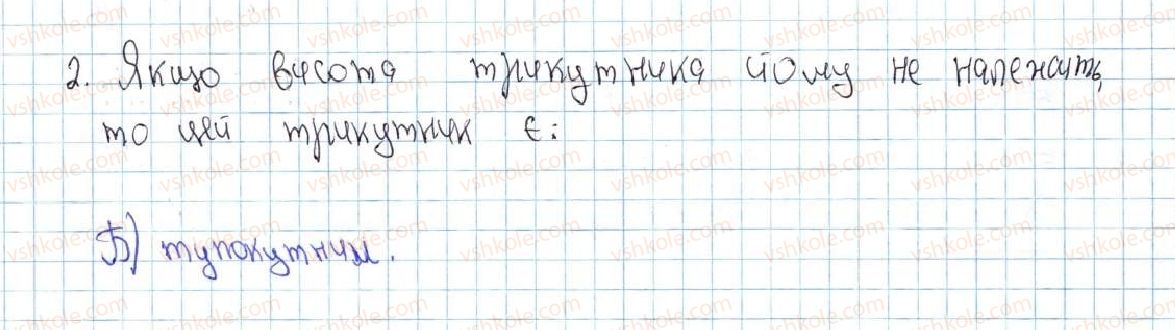 2. Якщо висота трикутника йому не належить,
то цей трикутник є:
Б) тупокутним.